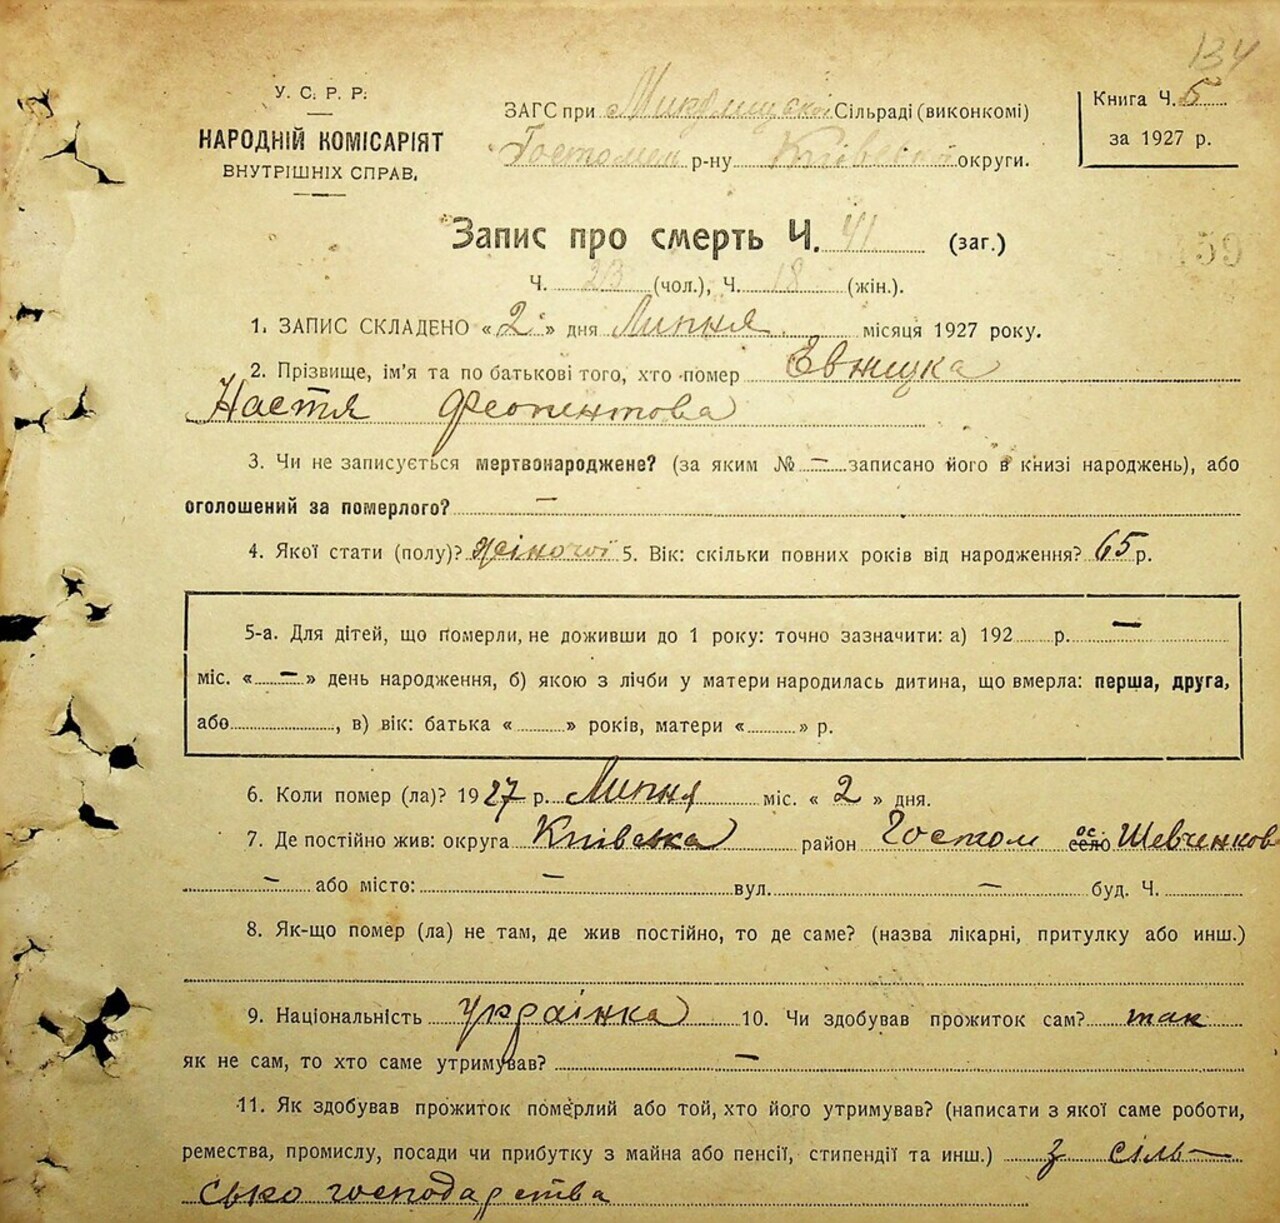 134
У. С. Р. Р.
НАРОДНІЙ КОМІСАРІЯТ
ВНУТРІШНІХ СПРАВ.
ЗАГС при Микулицької Сільраді (виконкомі)
Гостомел р-ну Київської округи.
Книга Ч. 5
за 1927 р.
Запис про смерть Ч. 41 (заг.)
Ч. 23 (чол.), Ч. 18 (жін.).
1. ЗАПИС СКЛАДЕНО « 2 » дня Липня місяця 1927 року.
2. Прізвище, ім'я та по батькові того, хто помер
Настя
3. Чи не записується мертвонароджене? (за яким № — записано його в книзі народжень), або
оголошений за померлого? —
4. Якої стати (полу)? жіночої 5. Вік: скільки повних років від народження? 65 р.
5-а. Для дітей, що померли, не доживши до 1 року: точно зазначити: а) 192 р. —
міс. « — » день народження, б) якою з лічби у матери народилась дитина, що вмерла: перша, друга,
або , в) вік: батька « » років, матери « » р.
6. Коли помер (ла)? 1927 р. Липня міс. « 2 » дня.
7. Де постійно жив: округа Київська район Гостом село ос Шевченков
— або місто: — вул. — буд. Ч.
8. Як-що помер (ла) не там, де жив постійно, то де саме? (назва лікарні, притулку або инш.)
9. Національність Українка 10. Чи здобував прожиток сам? так
як не сам, то хто саме утримував? —
11. Як здобував прожиток померлий або той, хто його утримував? (написати з якої саме роботи,
ремества, промислу, посади чи прибутку з майна або пенсії, стипендії та инш.) з сіль-
сько господарства